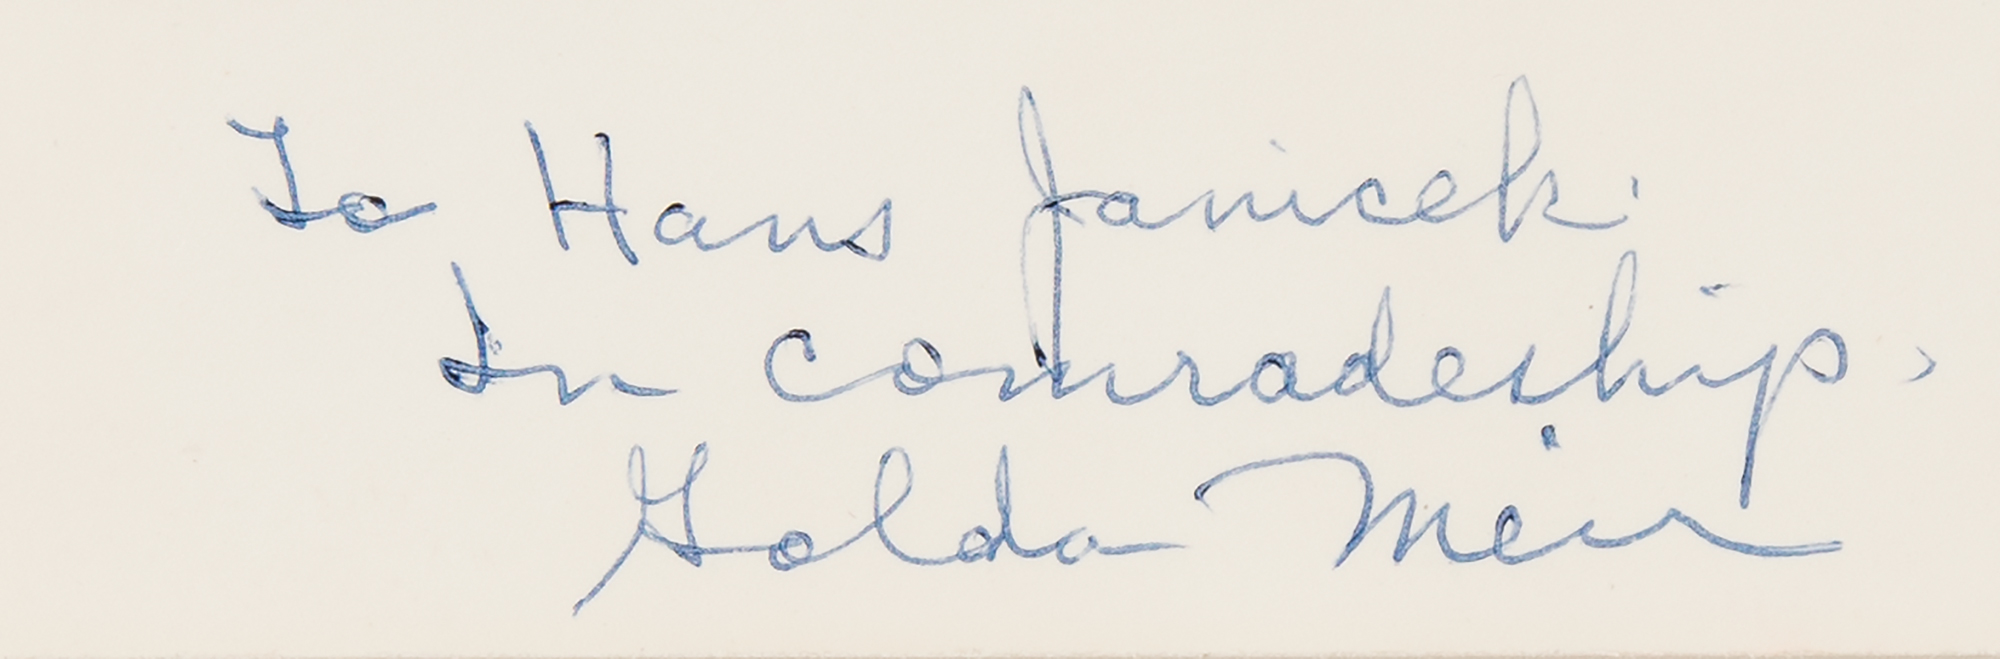 To Hans Janicek.
In comradeship,
Golda Meir